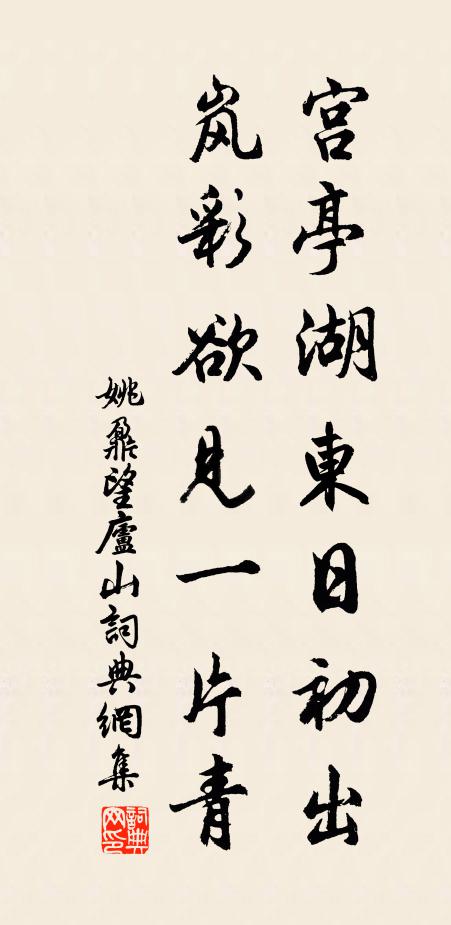 宫亭湖東日初出
岚彩欲見一片青
姚鼐望廬山詞典網集
詞典网印